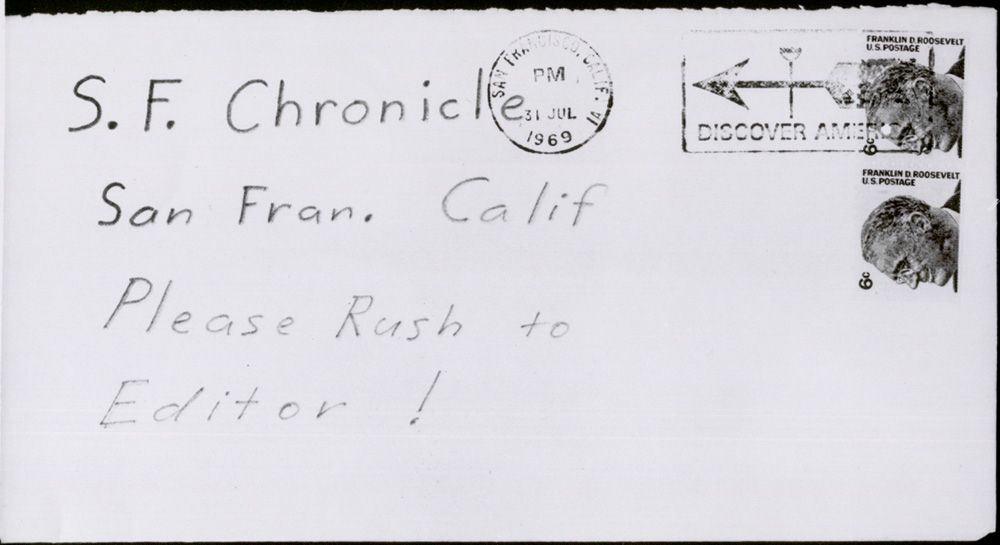 S.F. Chronicle
San Fran. Calif
Please Rush to
Editor !
SAN FRANCISCO, CALIF. 1A
PM
31 JUL
1969
DISCOVER AMERICA
FRANKLIN D. ROOSEVELT
U.S. POSTAGE
6c
FRANKLIN D. ROOSEVELT
U.S. POSTAGE
6c